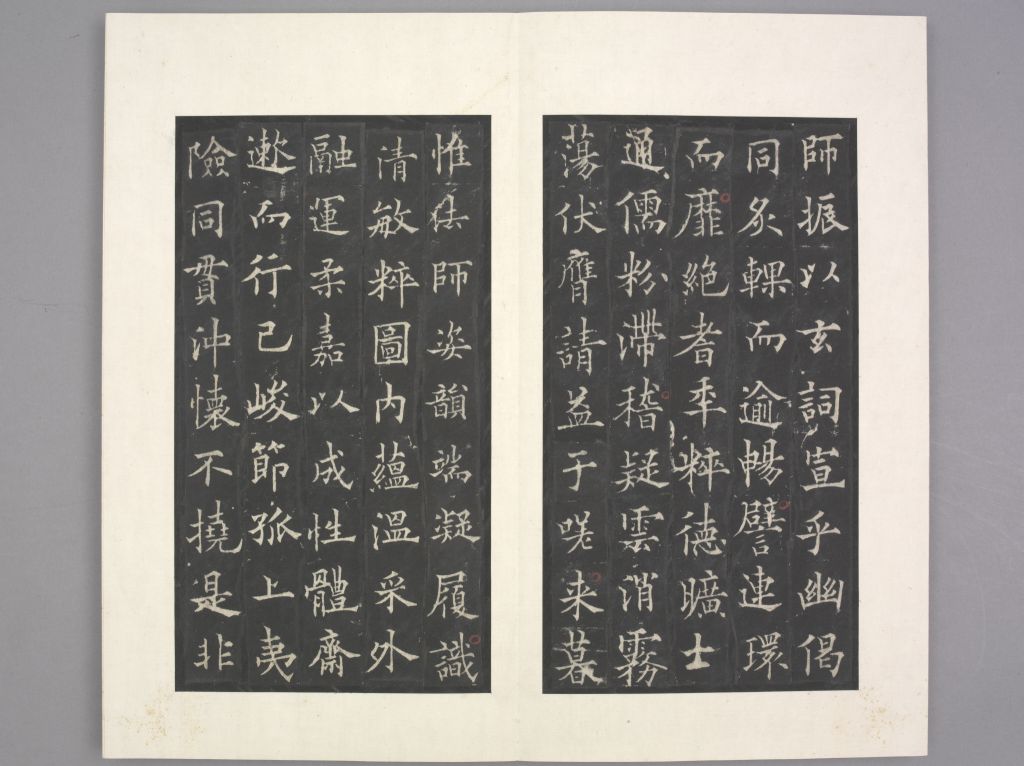 師振以玄詞宣乎幽偈
同炙輠而逾暢譬連環
而靡絕耆年粹德曠士
通儒粉滯稽疑雲消霧
蕩伏膺請益于嗟来暮
惟法師姿韻端凝履識
清敏粹圖內蘊溫采外
融運柔嘉以成性體齋
遬而行己峻節孤上夷
險同貫沖懷不撓是非